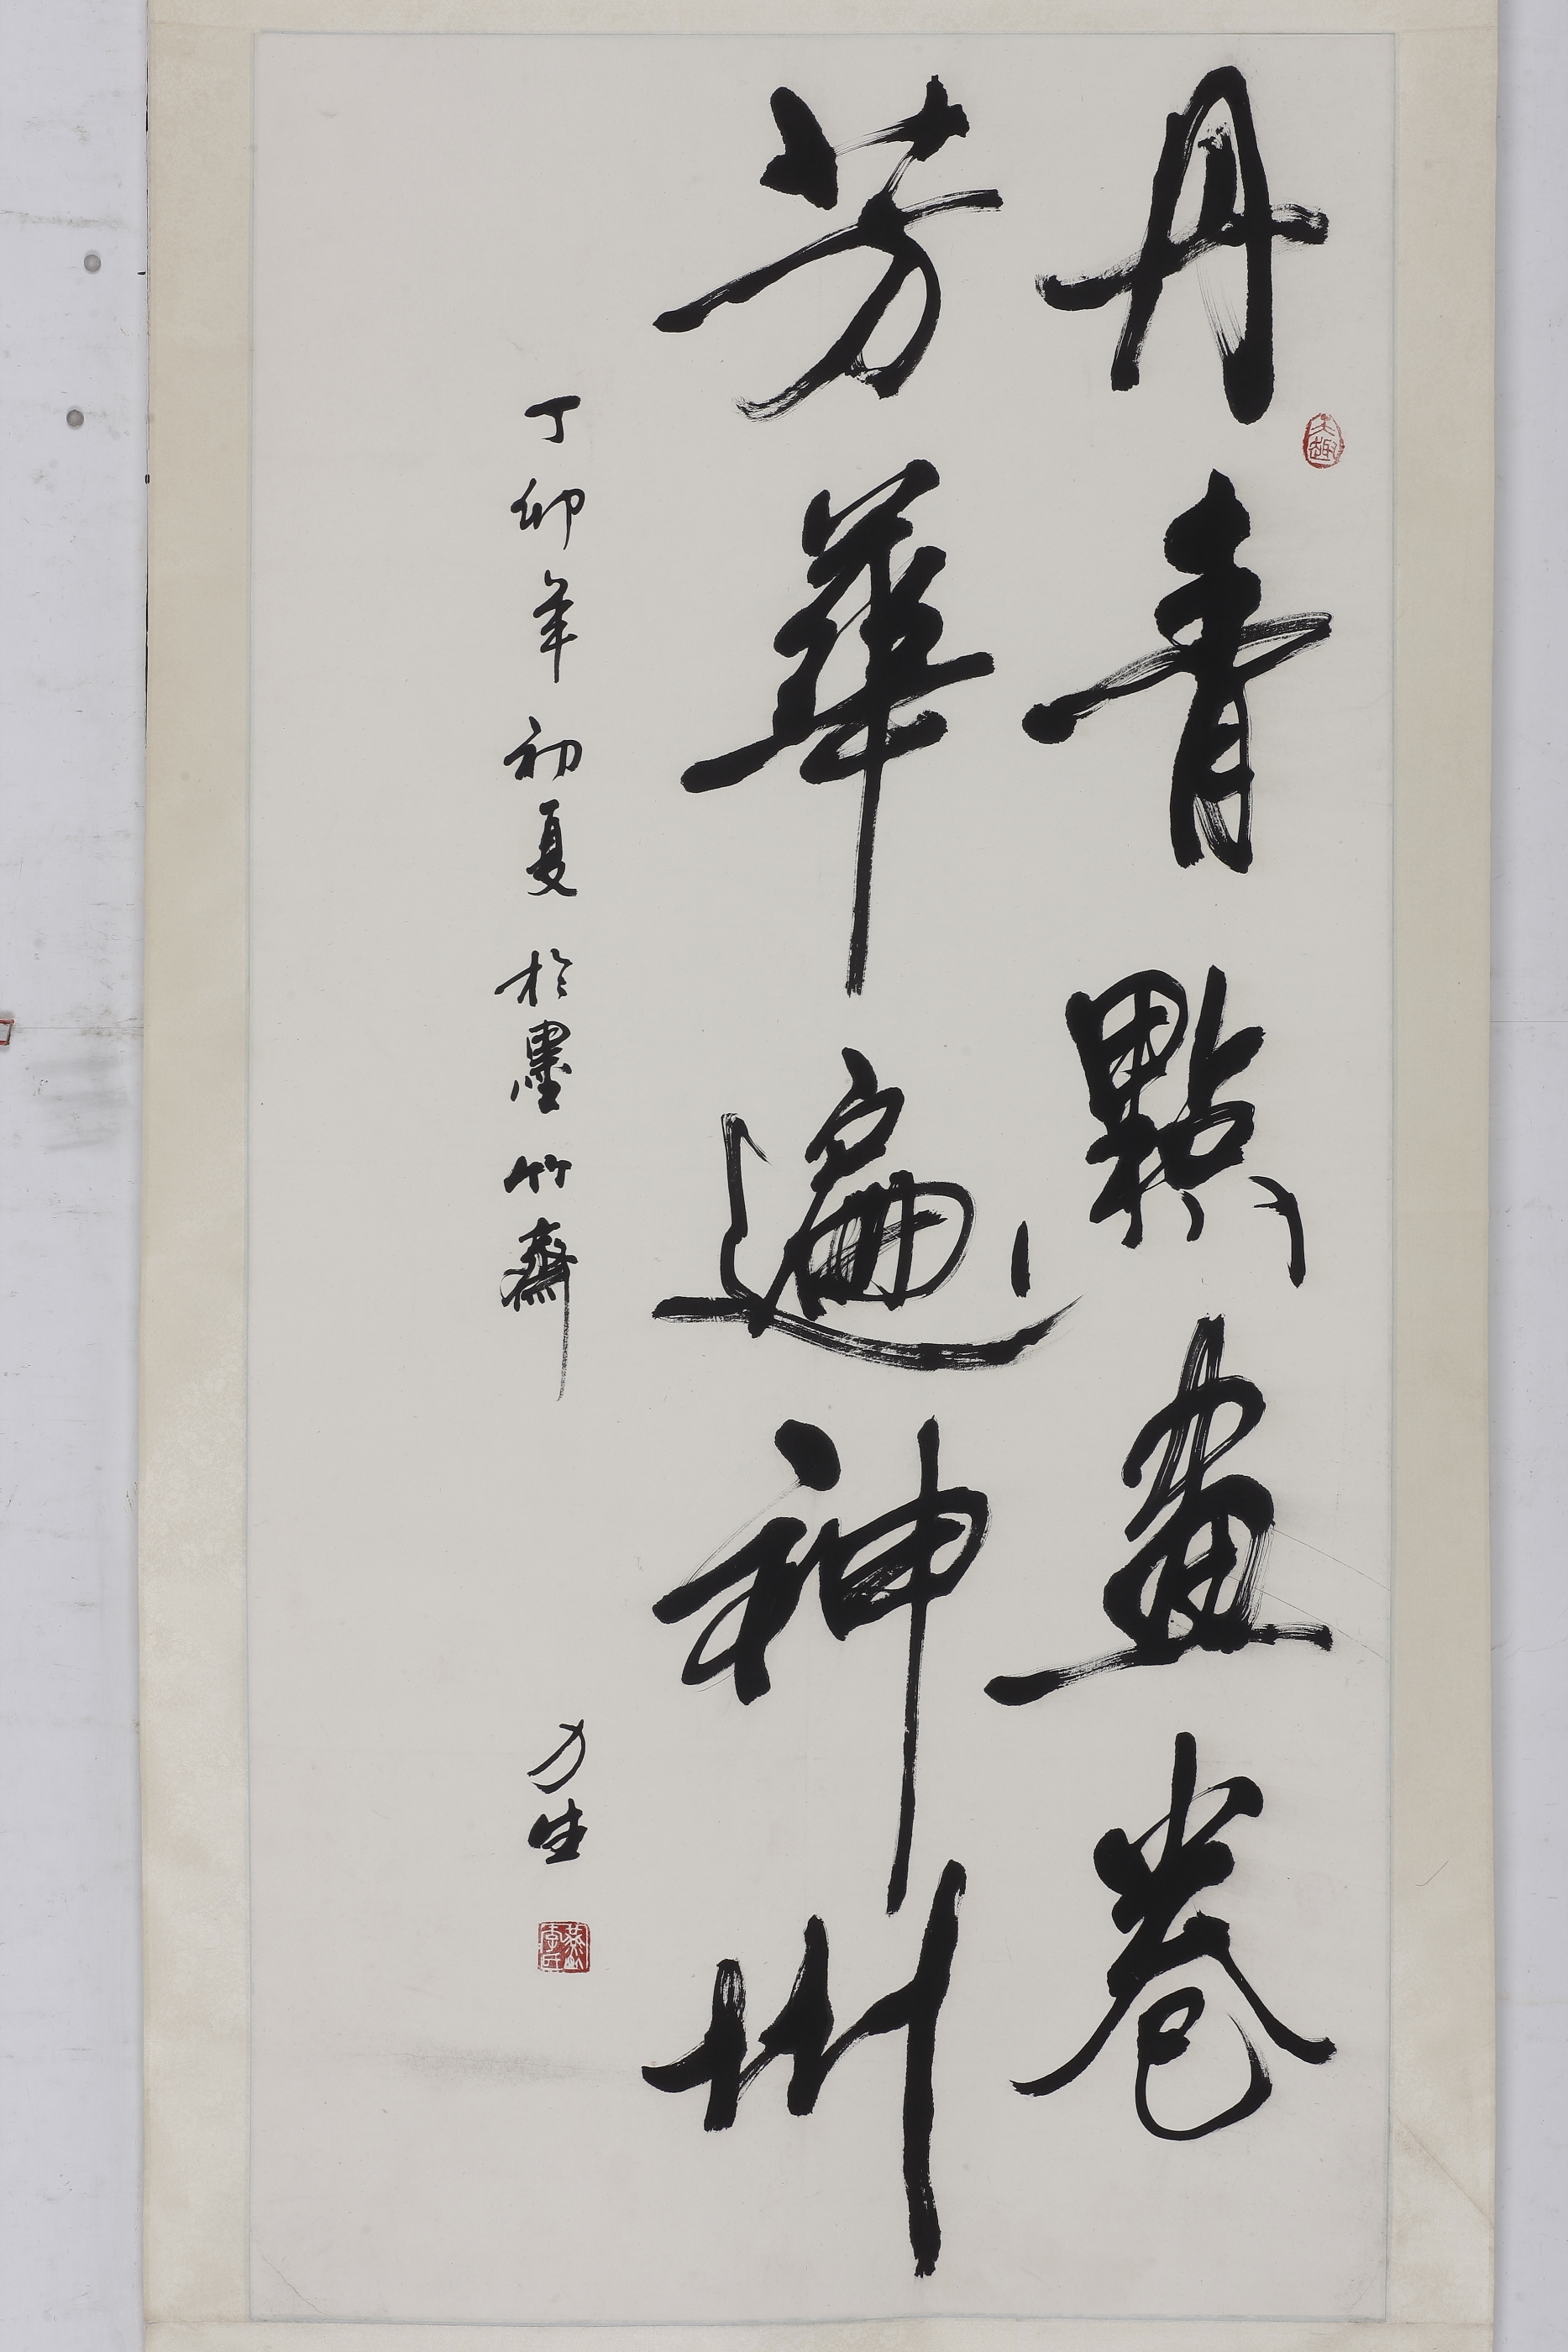 丹青點畫卷
芳華遍神州
丁卯年初夏於墨竹齋
力生